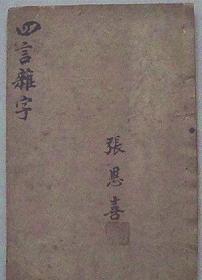 四言雜字
張恩喜